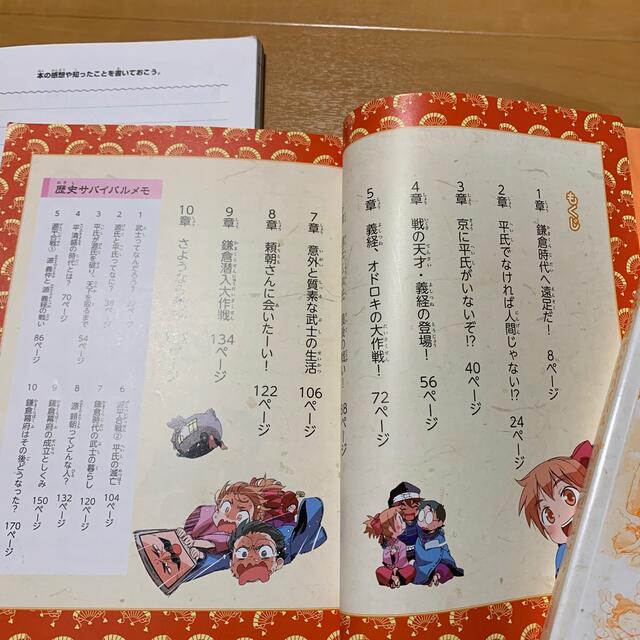 本の感想や知ったことを書いておこう。
もくじ
1章 鎌倉時代へ遠足だ! 8ページ
2章 平氏でなければ人間じゃない!? 24ページ
3章 京に平氏がいないぞ!? 40ページ
4章 戦の天才・義経の登場! 56ページ
5章 義経、オドロキの大作戦! 72ページ
88ページ
7章 意外と質素な武士の生活 106ページ
8章 頼朝さんに会いたーい! 122ページ
9章 鎌倉潜入大作戦! 134ページ
10章 さようなら
歴史サバイバルメモ
1 武士ってなんだろう?
2 源氏と平氏ってなに? 38ページ
3 平氏が源氏を破り、天下を取るまで 54ページ
4 平清盛の時代とは? 70ページ
5 源平合戦① 源義仲と源義経の戦い 86ページ
6 源平合戦② 平氏の滅亡 104ページ
7 鎌倉時代の武士の暮らし 120ページ
8 源頼朝ってどんな人? 132ページ
9 鎌倉幕府の成立としくみ 150ページ
10 鎌倉幕府はその後どうなった? 170ページ